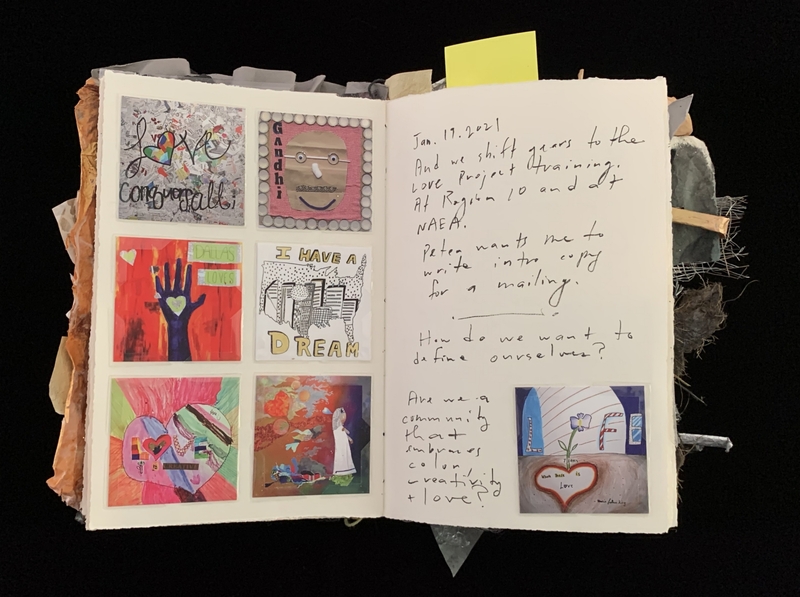 Love
conquers all!
Gandhi
DALLAS
LOVES
I HAVE A
DREAM
Jan. 19. 2021
And we shift gears to the
Love Project training.
At Region 10 and at
NAEA.
Peter wants me to
write intro copy
for a mailing.
How do we want to
define ourselves?
Are we a
community
that
embraces
color
creativity
+ love?
LOVE